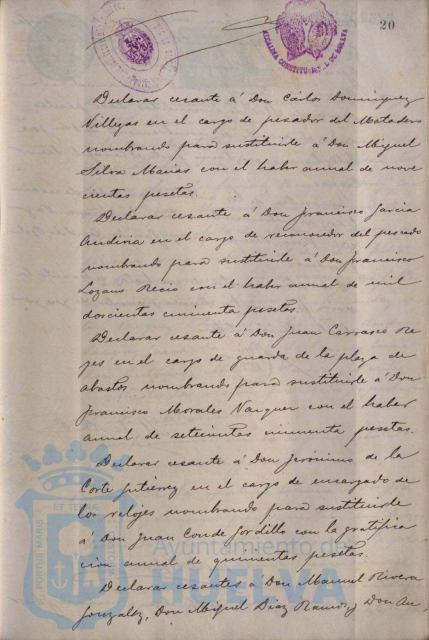 20
ALCALDIA CONSTITUCIONAL DE HUELVA
Declarar cesante á Don Cárlos Dominguez
Villegas en el cargo de pesador del Matadero
nombrando para sustituirle á Don Miguel
Silva Macias con el haber annal de nove
cientas pesetas.
Declarar cesante á Don Francisco Garcia
en el cargo de reconocedor del pescado
nombrando para sustituirle á Don Francisco
Lozano Recio con el haber annal de mil
doscientas cincuenta pesetas.
Declarar cesante á Don Juan Carrasco Re
yes en el cargo de guarda de la plaza de
abastos nombrando para sustituirle á Don
Francisco Morales Vazquez con el haber
annal de setecientas cincuenta pesetas.
Declarar cesante á Don Jerónimo de la
Corte Gutiérrez en el cargo de encargado de
los relojes nombrando para sustituirle
á Don Juan Conde Gordillo con la gratifica
cion annal de quinientas pesetas.
Declarar cesantes á Don Manuel Rivera
Gonzalez, Don Miguel Diaz Ramos, y Don An,
PORTUS MARIS
ET TERRAE
Ayuntamiento de
HUELVA